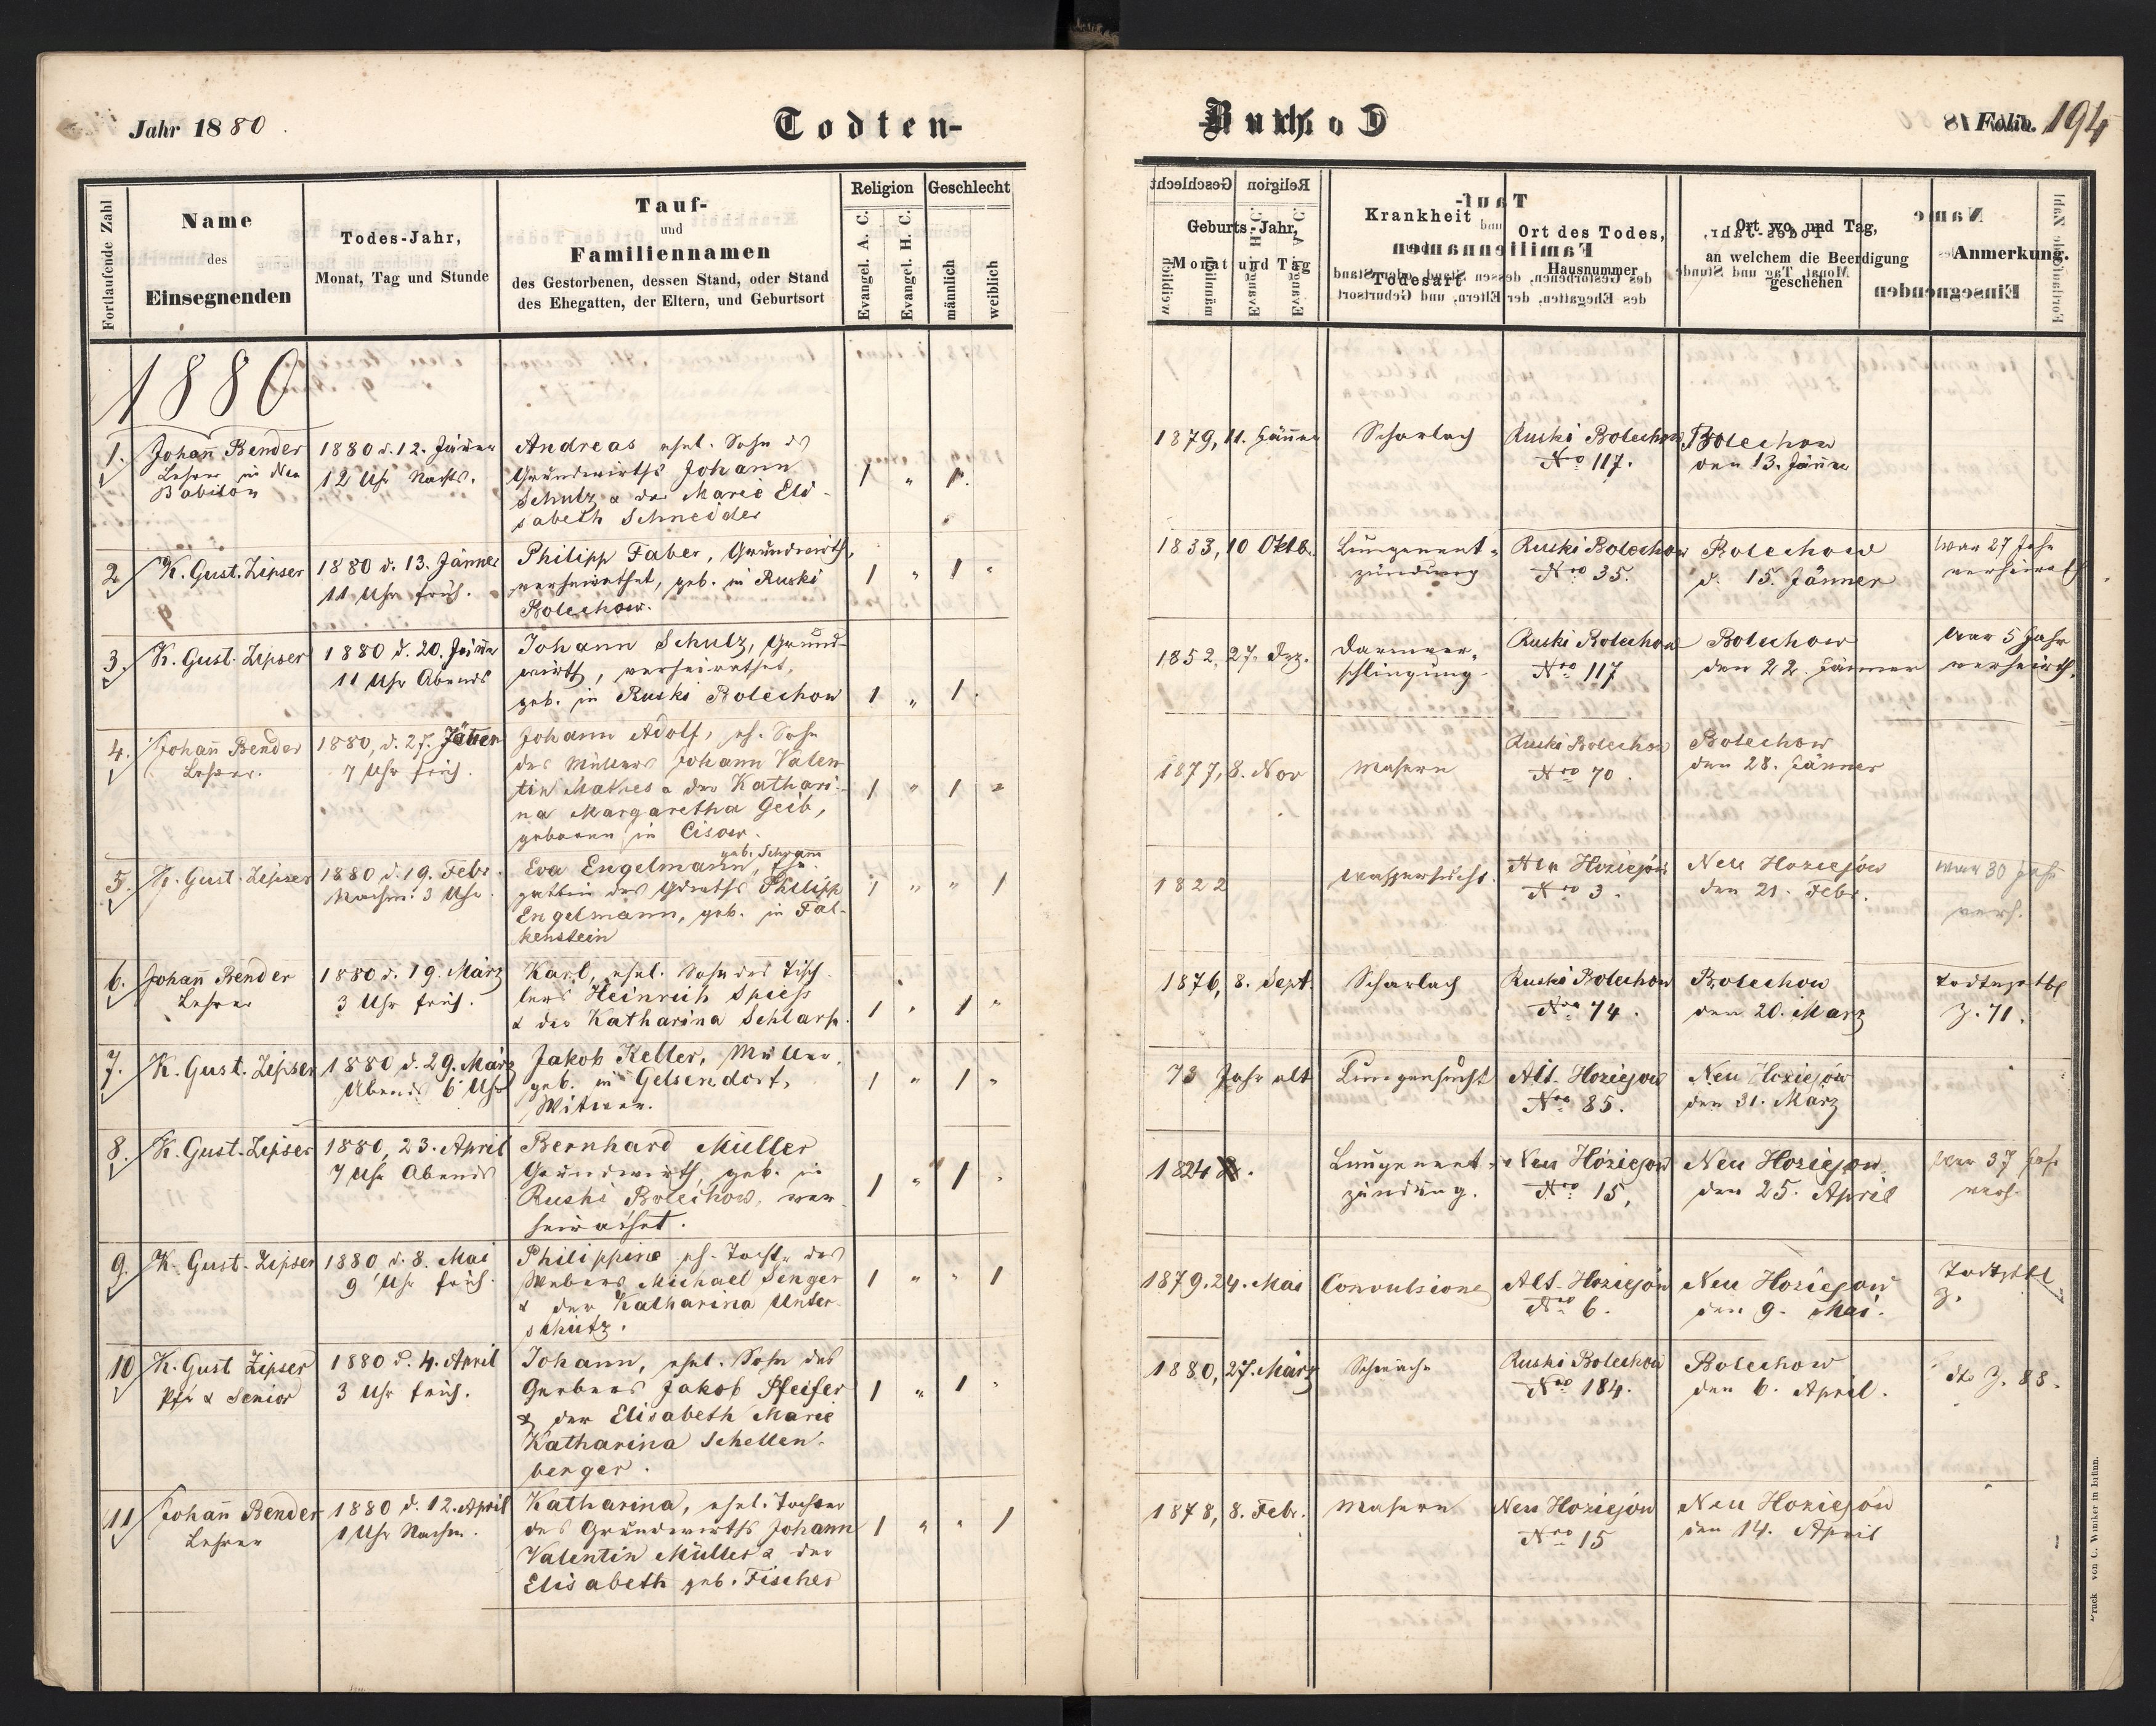 Jahr 1880
Todten-
Buch
Folio. 194
Fortlaufende Zahl
Name
des
Einsegnenden
Todes-Jahr,
Monat, Tag und Stunde
Tauf-
und
Familiennamen
des Gestorbenen, dessen Stand, oder Stand
des Ehegatten, der Eltern, und Geburtsort
Religion
Evangel. A. C.
Evangel. H. C.
Geschlecht
männlich
weiblich
Geburts-Jahr,
Monat und Tag
Krankheit
oder
Todesart
Ort des Todes,
Hausnummer
Ort wo, und Tag,
an welchem die Beerdigung
geschehen
Anmerkung.
1880
1.
Johan̄ Bender
Lehrer in der
Babilon
1880 d. 12. Jänner
12 Uhr Nachts.
Andreas ehel. Sohn des
Grundwirths Johann
Schulz & der Marie Eli-
sabeth Schneider
1 " 1.
1879, 11. Jänner
Scharlach
Ruski Bolechow
Nro 117.
Bolechow
den 13. Jänner
2
K. Gust. Zipser
1880 d. 13. Jänner
11 Uhr früh.
Philipp Faber, Grundwirth,
verheirathet, geb. in Ruski
Bolechow.
1 " 1 "
1833, 10 Oktb.
Lungenent-
zündung
Ruski Bolechow
Nro 35.
Bolechow
d. 15. Jänner
war 27 Jahr
verheirath
3.
K. Gust. Zipser
1880 d. 20. Jänner
11 Uhr Abends
Johann Schulz, Grund-
wirth, verheirathet,
geb. in Ruski Bolechow
1 " 1.
1852, 27. Dez.
Darmver-
schlingung
Ruski Bolechow
Nro 117
Bolechow
den 22. Jänner
War 5 Jahr
verheirth.
4.
Johan̄ Bender
Lehrer.
1880, d. 27. Jänner
7 Uhr früh.
Johann Adolf, eh. Sohn
des Müllers Johann Valen
tin Mathes & der Kathari-
na Margaretha Geib,
geboren in Cisow.
1 " 1 "
1877, 8. Nov
Masern
Ruski Bolechow
Nro 70.
Bolechow
den 28. Jänner
5.
K. Gust. Zipser
1880 d. 19. Febr.
Nachm. 3 Uhr.
geb. Schramm
Eva Engelmann, Ehe-
gattin des Grdwths Philipp
Engelmann, geb. in Fal-
kenstein
1 " " 1
1822
Wassersucht.
Neu Hoziejów
Nro 3.
Neu Hoziejów
den 21. Febr.
war 30 Jahr
verh.
6.
Johan̄ Bender
Lehrer
1880 d. 19. März
3 Uhr früh.
Karl, ehel. Sohn des Tisch-
lers Heinrich Spiess
& der Katharina Schlarp.
1 " 1 "
1876, 8. Sept.
Scharlach
Ruski Bolechow
Nro 74.
Bolechow
den 20. März
Z. 71.
7.
K. Gust. Zipser
1880 d. 29. März
Abends 6 Uhr
Jakob Keller, Müller,
geb. in Gelsendorf,
Witwer.
1 " 1 "
73 Jahr alt
Lungensucht
Alt-Hoziejow
Nro 85.
Neu Hoziejów
den 31. März
8.
K. Gust. Zipser
1880, 23. April
7 Uhr Abends
Bernhard Müller
Grundwirth, geb. in
Ruski Bolechow, ver-
heirathet.
1 " 1 "
1824
Lungenent-
zündung.
Neu Hoziejow
Nro 15,
Neu Hoziejow
den 25. April
war 37 Jahr
verh.
9.
K. Gust. Zipser
1880 d. 8. Mai
9 Uhr früh.
Philippine eh. Tocht. des
Webers Michael Senger
& der Katharina Unter-
schütz.
1 " " 1
1879. 24. Mai
Convulsionen
Alt-Hoziejów
Nro 6.
Neu Hoziejow
den 9. Mai.
Z.
10
K. Gust Zipser
Pfr & Senior
1880 d. 4. April
3 Uhr früh.
Johann, ehel. Sohn des
Gerbers Jakob Pfeifer
& der Elisabeth Marie
Katharina Schellen-
berger.
1 " 1 "
1880, 27. März
Schwäche
Ruski Bolechow
Nro 184.
Bolechow
den 6. April.
dto Z. 88.
11
Johan̄ Bender
Lehrer
1880 d. 12. April
1 Uhr Nachm.
Katharina, ehel. Tochter
des Grundwirths Johann
Valentin Müller & der
Elisabeth geb. Fischer
1 " " 1
1878, 8. Febr.
Masern
Neu Hoziejów
Nro 15
Neu Hoziejów
den 14. April
Druck von C. Winiker in Brünn.